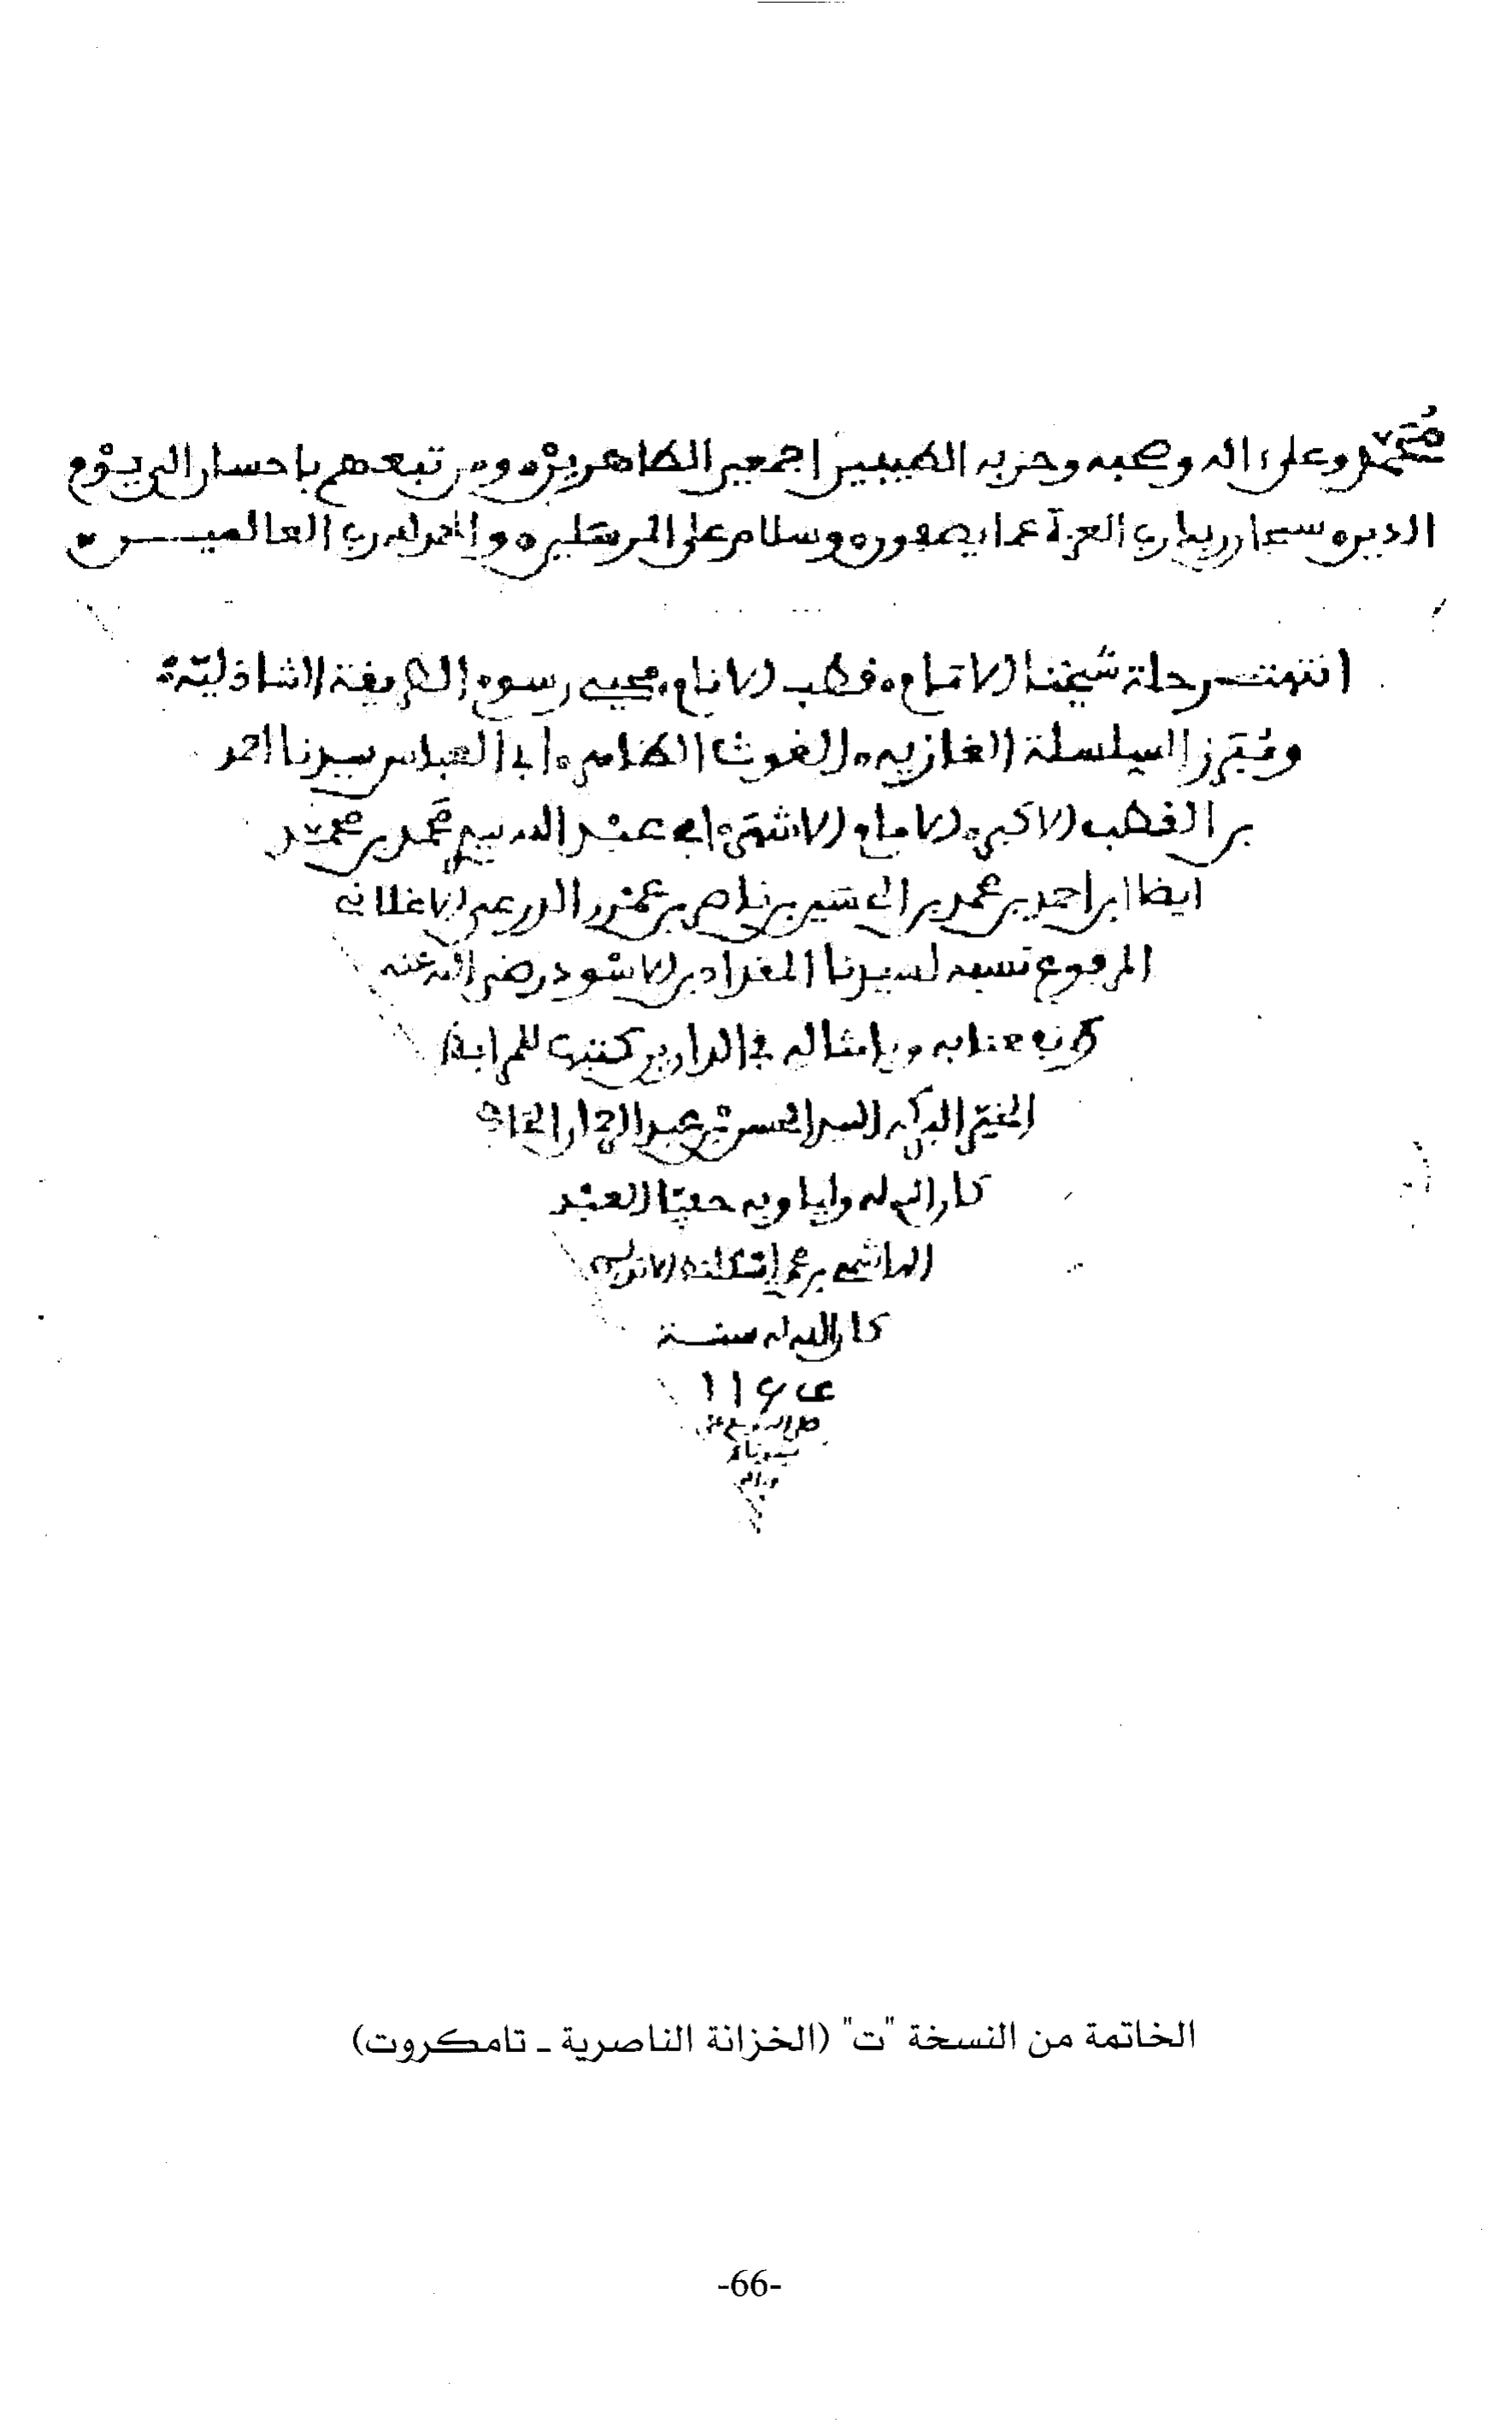 محمد وعلى ءاله وصحبه وحزبه الطيبين اجمعين الطاهرين ومن تبعهم باحسان الى يوم
الدين سبحان ربك رب العزة عما يصفون وسلام على المرسلين والحمد لله رب العالميـــن
انتهت رحلة شيخنا الامام، قطب الانام، محيي رسوم الطريقة الشاذلية
السلسلة الغازية، الغوث ابى العباس سيدنا احمد
بن القطب الاكبر، الامام الاشهر، ابي عبد الله سيدي محمد بن محمد
ايضا بن احمد بن محمد بن الحسين بن ناصر بن عمرو الدرعي الاغلاني
المرفوع نسبه لسيدنا المقداد بن الاسود رضي الله عنه
وبامثاله في الدارين كتبها للمرابط
الخير السيد الحسن بن عبد
كان الله له وليا وبه حفيا العبد
الهاشمي بن الاندلسي
كان الله له سنـــة
الخاتمة من النسخة "ت" (الخزانة الناصرية ـ تامكروت)
-66-